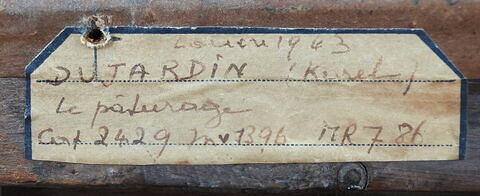 Louvre 1943
DUJARDIN (Karel)
Le pâturage
Cat 2429 Inv 1396 MR 786